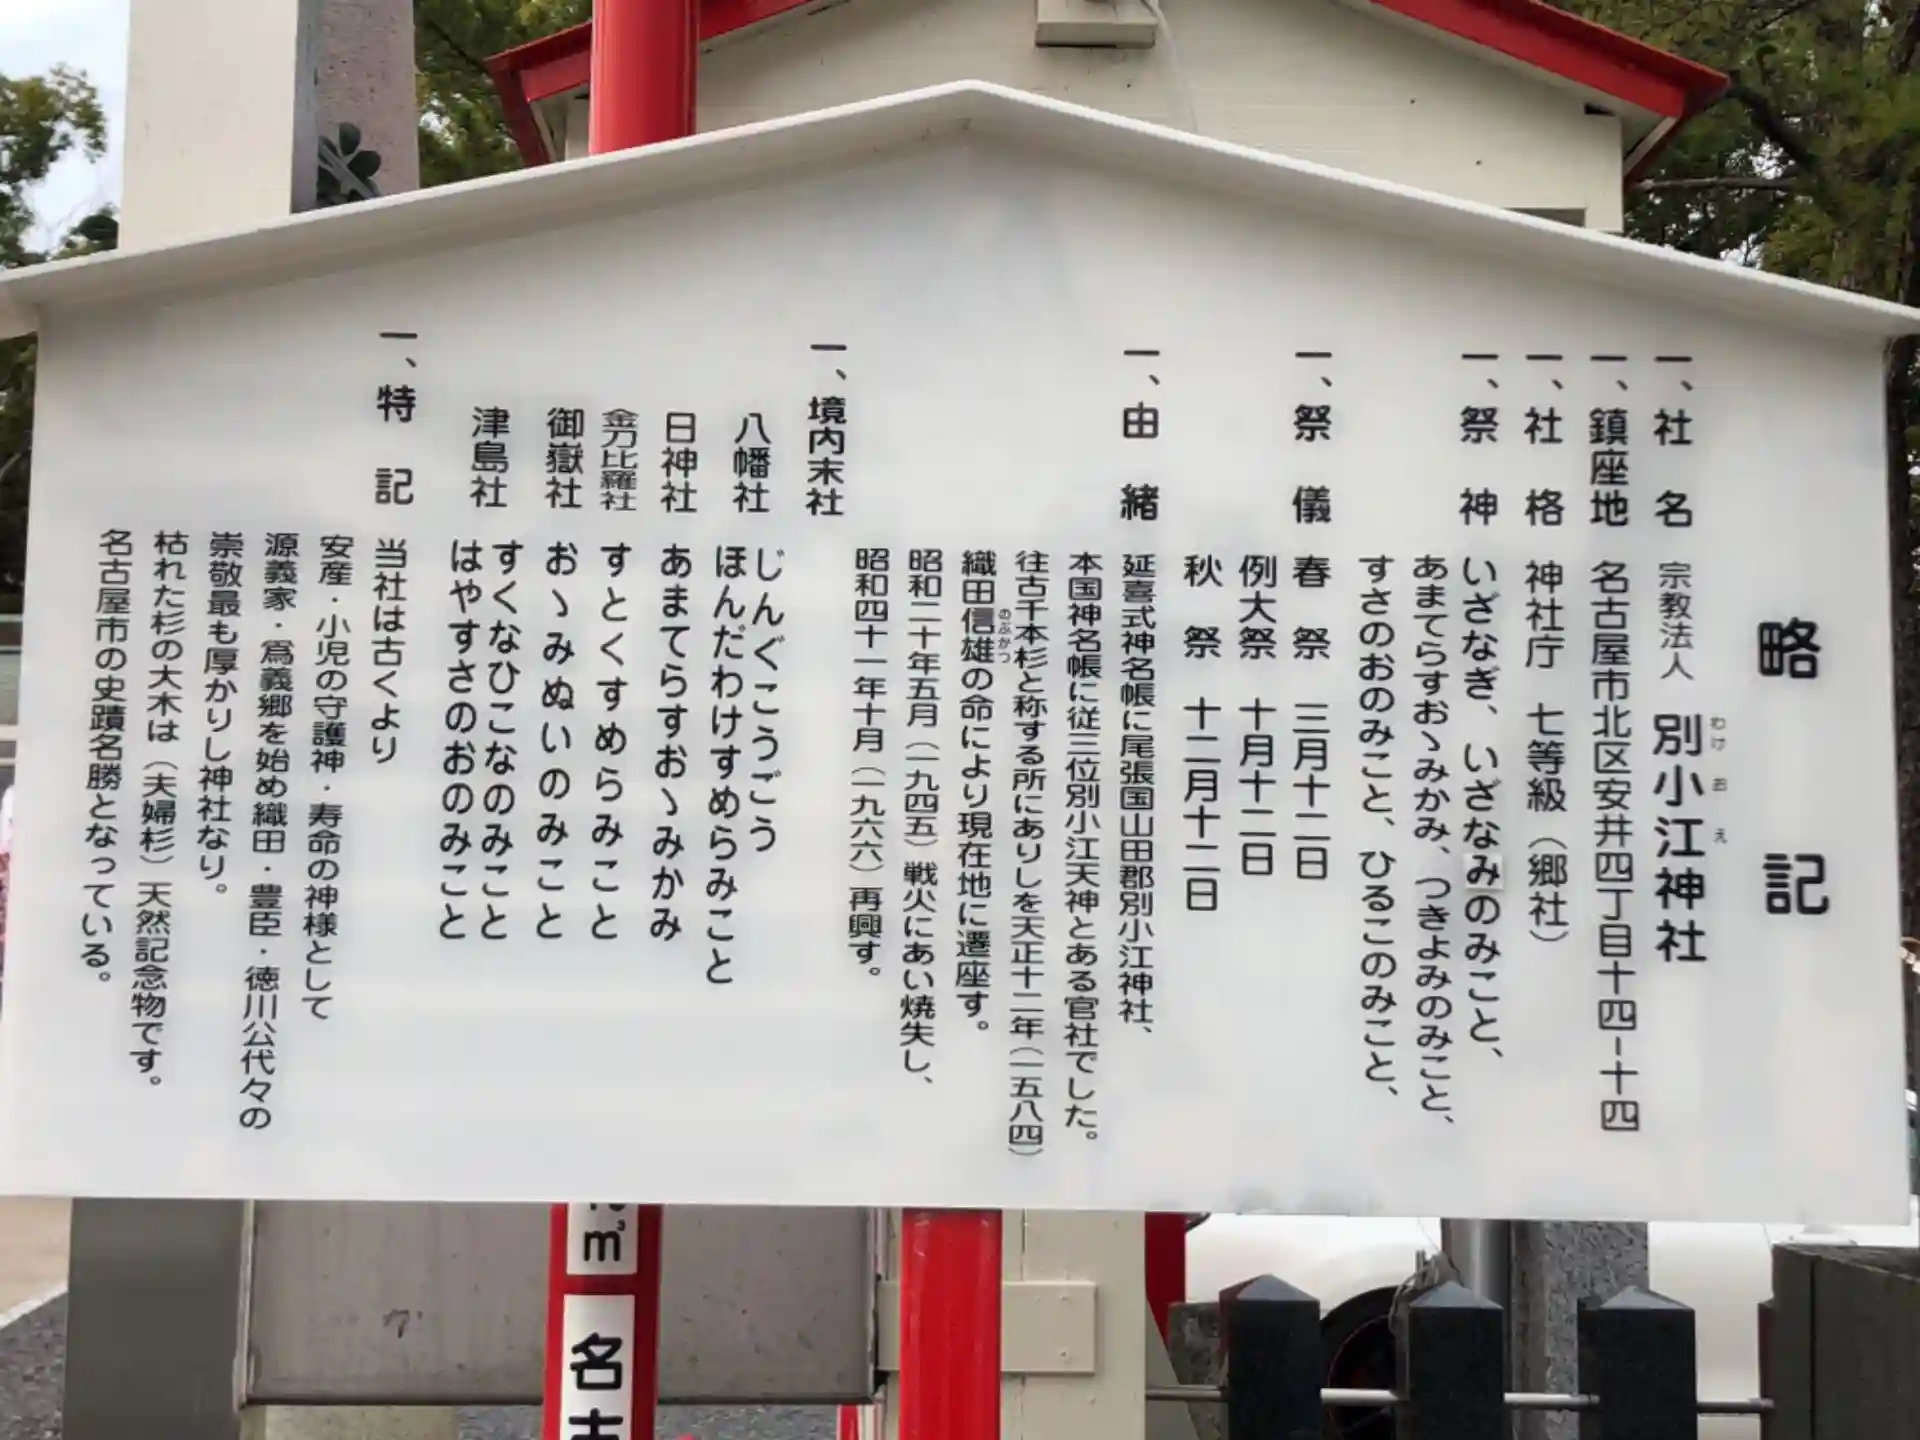 略記
一、社名 宗教法人 別小江神社
わけおえ
一、鎮座地 名古屋市北区安井四丁目十四-十四
一、社格 神社庁 七等級（郷社）
一、祭神 いざなぎ、いざなみのみこと、
あまてらすおゝみかみ、つきよみのみこと、
すさのおのみこと、ひるこのみこと、
一、祭儀 春祭 三月十二日
例大祭 十月十二日
秋祭 十二月十二日
一、由緒 延喜式神名帳に尾張国山田郡別小江神社、
本国神名帳に従三位別小江天神とある官社でした。
往古千本杉と称する所にありしを天正十二年（一五八四）
織田信雄の命により現在地に遷座す。
のぶかつ
昭和二十年五月（一九四五）戦火にあい焼失し、
昭和四十一年十月（一九六六）再興す。
一、境内末社
八幡社 じんぐこうごう
ほんだわけすめらみこと
日神社 あまてらすおゝみかみ
金刀比羅社 すとくすめらみこと
御嶽社 おゝみぬいのみこと
津島社 すくなひこなのみこと
はやすさのおのみこと
一、特記 当社は古くより
安産・小児の守護神・寿命の神様として
源義家・爲義郷を始め織田・豊臣・徳川公代々の
崇敬最も厚かりし神社なり。
枯れた杉の大木は（夫婦杉）天然記念物です。
名古屋市の史蹟名勝となっている。
㎥
名古